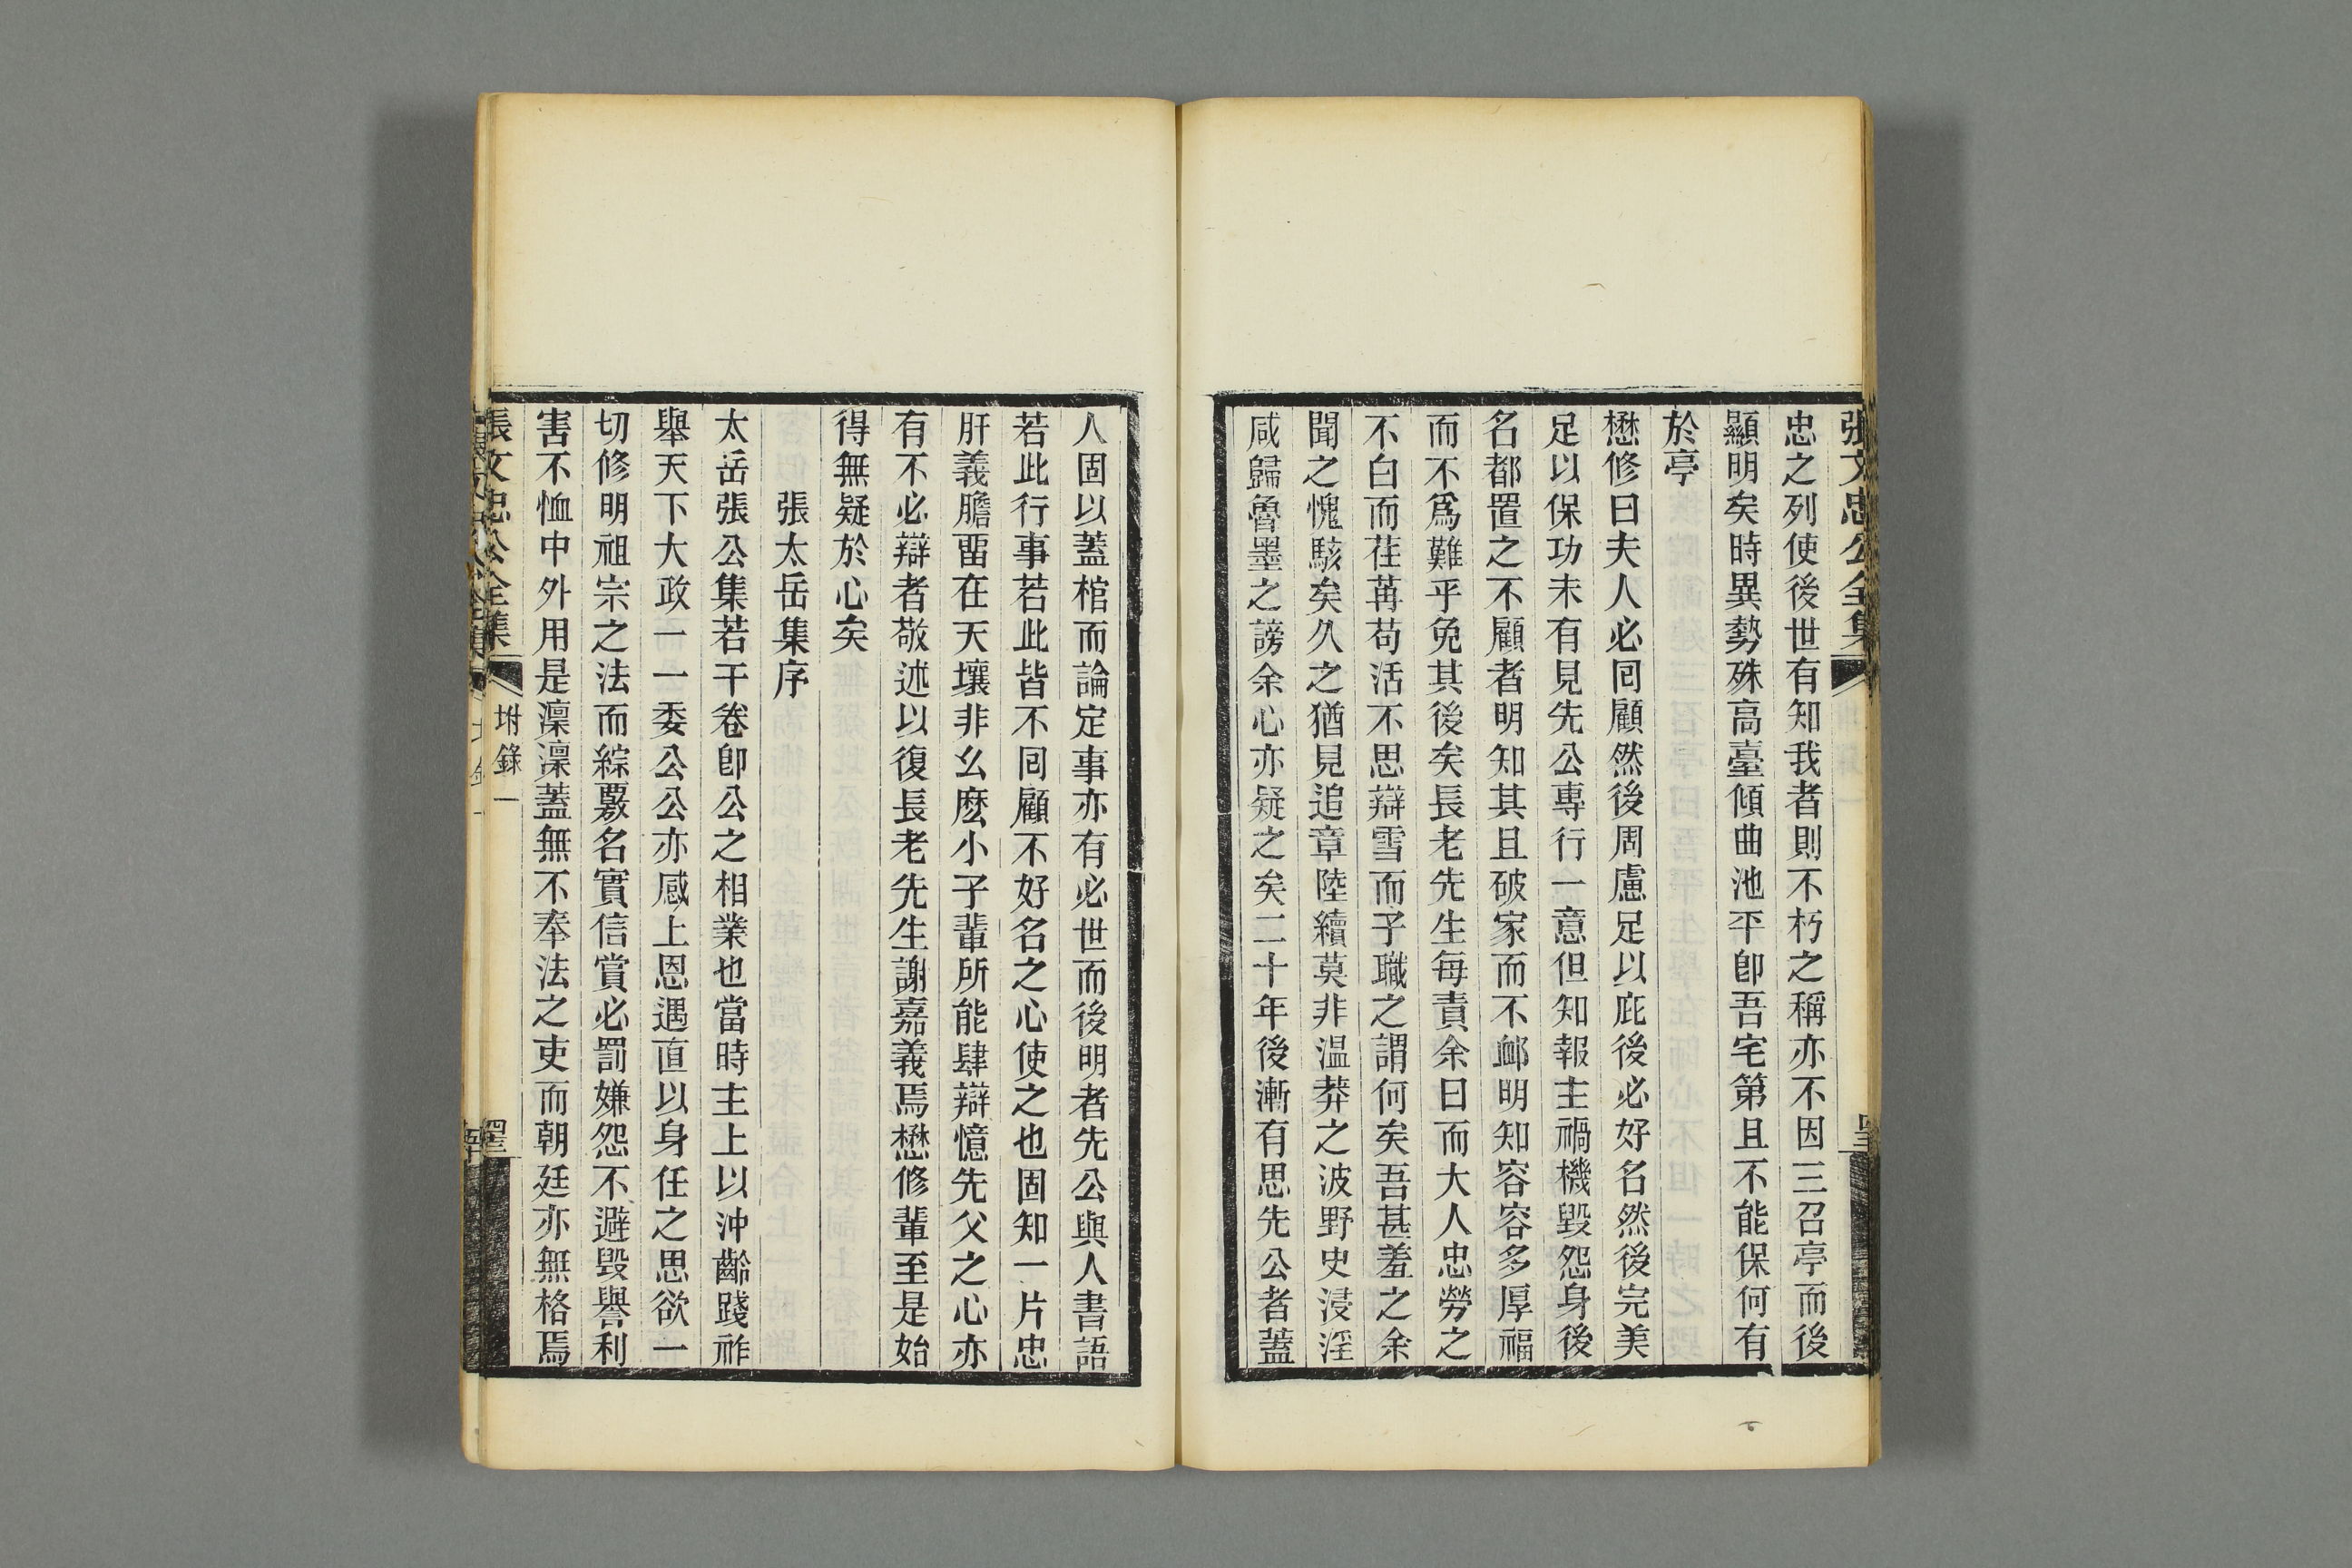 張文忠公全集
忠之列使後世有知我者則不朽之稱亦不因三召亭而後
顯明矣時異勢殊高臺傾曲池平卽吾宅第且不能保何有
於亭
懋修曰夫人必囘顧然後周慮足以庇後必好名然後完美
足以保功未有見先公專行一意但知報主禍機毀怨身後
名都置之不顧者明知其且破家而不卹明知容容多厚福
而不爲難乎免其後矣長老先生每責余曰而大人忠勞之
不白而荏苒苟活不思辯雪而子職之謂何矣吾甚羞之余
聞之愧駭矣久之猶見追章陸續莫非温莽之波野史浸淫
咸歸魯墨之謗余心亦疑之矣二十年後漸有思先公者蓋
人固以蓋棺而論定事亦有必世而後明者先公與人書語
若此行事若此皆不囘顧不好名之心使之也固知一片忠
肝義膽畱在天壤非幺麽小子輩所能肆辯憶先父之心亦
有不必辯者敬述以復長老先生謝嘉義焉懋修輩至是始
得無疑於心矣
張太岳集序
太岳張公集若干卷卽公之相業也當時主上以沖齡踐祚
舉天下大政一一委公公亦感上恩遇直以身任之思欲一
切修明祖宗之法而綜覈名實信賞必罰嫌怨不避毀譽利
害不恤中外用是凜凜蓋無不奉法之吏而朝廷亦無格焉
張文忠公全集
坿錄一